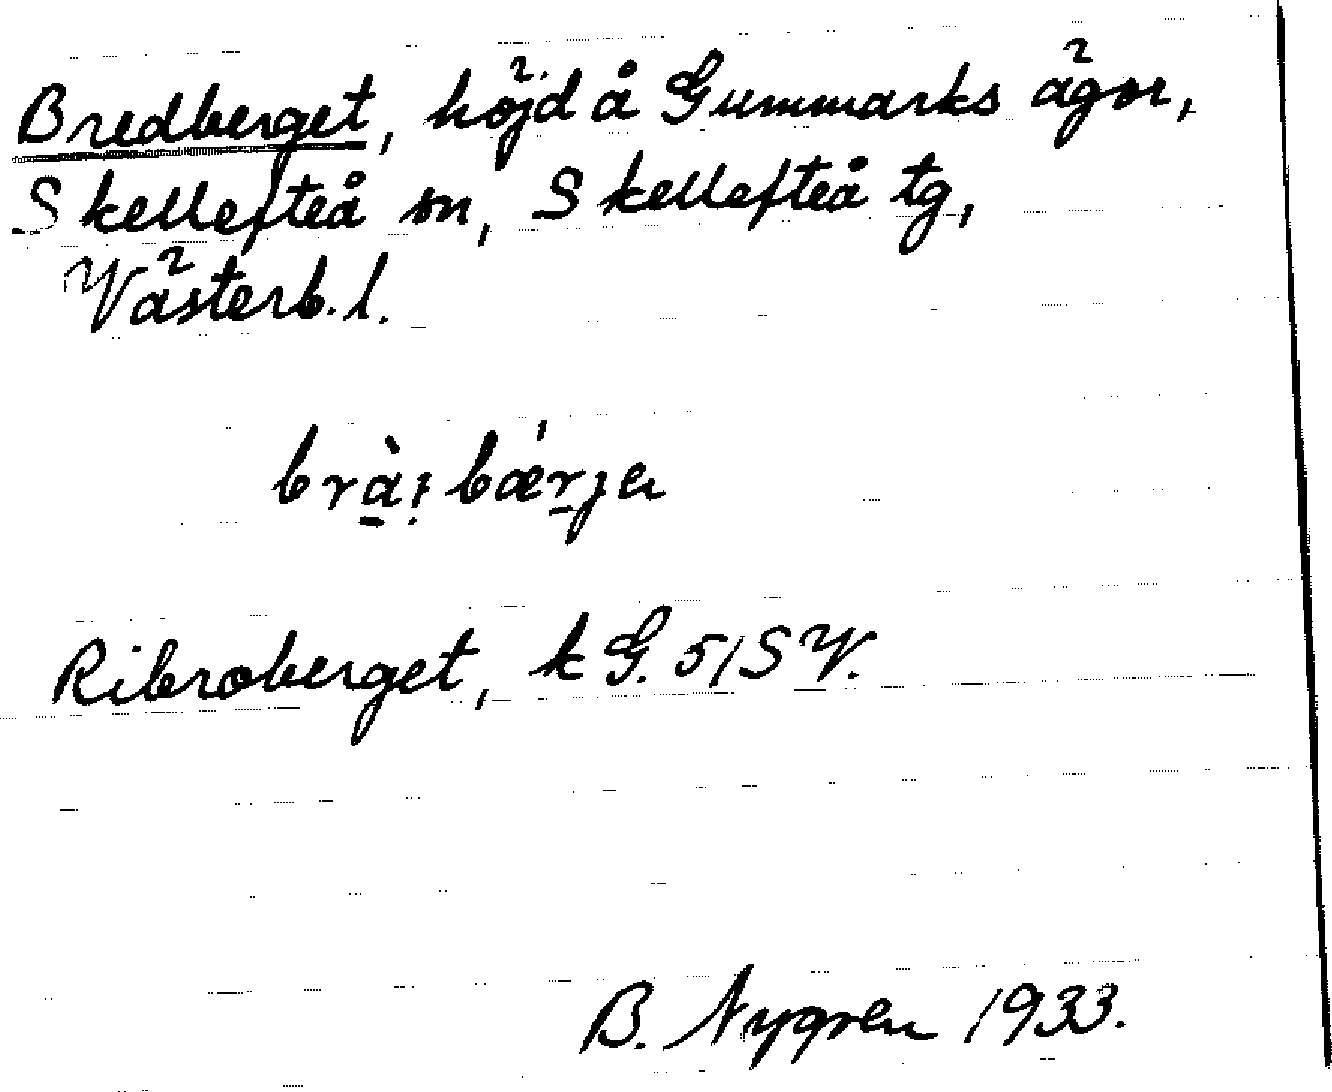 Bredberget, höjd å Gummarks ägor,
Skellefteå sn, Skellefteå tg,
Västerb. l.
Ribroberget, k G. 5/SV.
B. Nygren 1933.